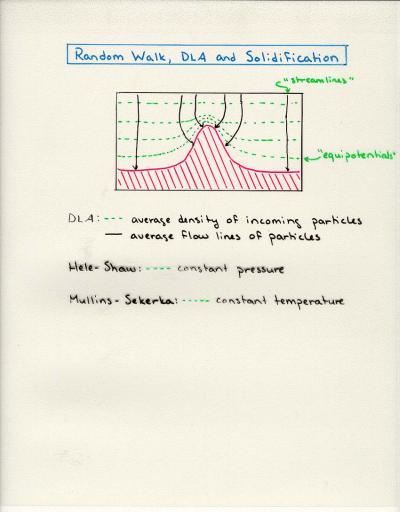 Random Walk, DLA and Solidification
"streamlines"
"equipotentials"
DLA: ---- average density of incoming particles
— average flow lines of particles
Hele-Shaw: ---- constant pressure
Mullins-Sekerka: ----- constant temperature